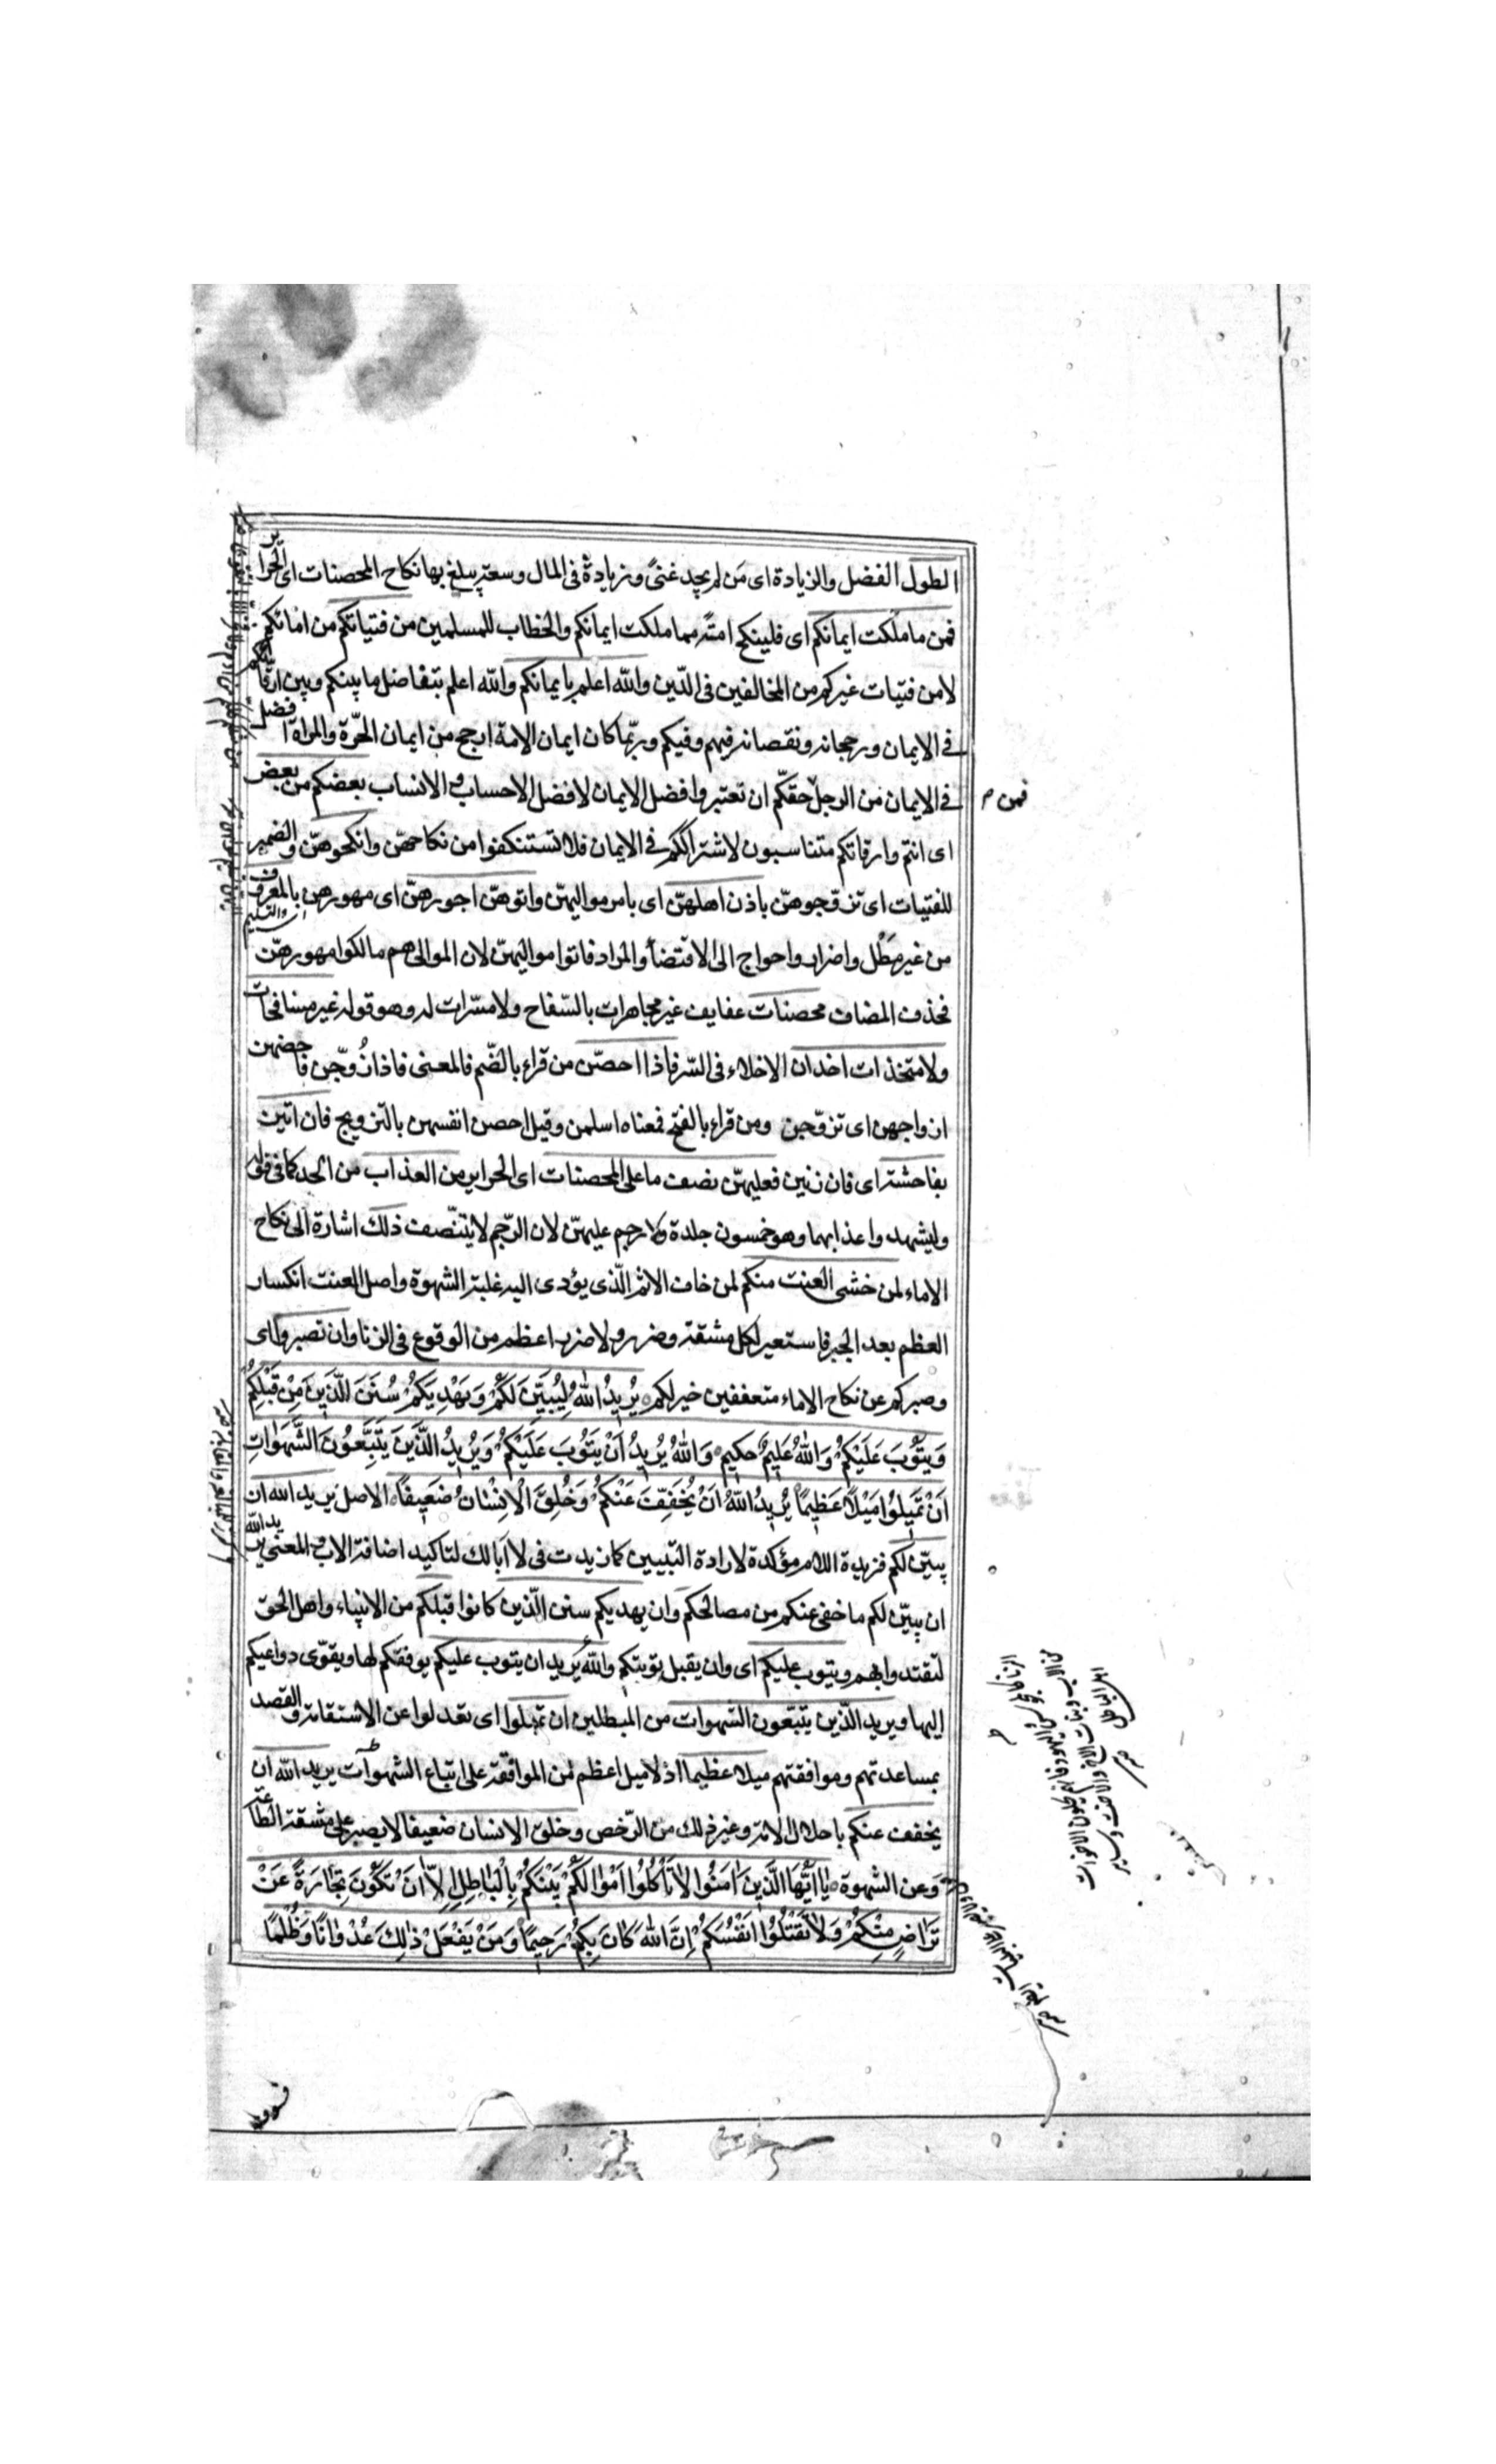 الطول الفضل والزيادة اى مَن لم يجد غنىً وزيادةً فى المال وسعة يبلغ بها نكاح المحصنات اى الحراير
فمن ما ملكت ايمانكم اى فلينكح امةً مما ملكت ايمانكم والخطاب للمسلمين من فتياتكم من امائكم
لا من فتيات غيركم من المخالفين فى الدّين والله اعلم بايمانكم والله اعلم بتفاضل ما بينكم وبين ارقائكم
فى الايمان ورجحانه ونقصانه فيهم وفيكم وربّما كان ايمان الامة ارجح من ايمان الحرّة والمراة افضل
فى الايمان من الرجل حقكّم ان تعتبروا فضل الايمان لا فضل الاحساب والانساب بعضكم من بعض
فمن م
اى انتم وارقائكم متناسبون لاشتراككم فى الايمان فلا تستنكفوا من نكاحهنّ وانكحوهنّ والضمير
للفتيات اى تزوّجوهنّ باذن اهلهنّ اى بامر مواليهنّ واتوهنّ اجورهنّ اى مهورهن بالمعروف
من غير مَطْل واضرار واحواج الى الاقتضاء والمراد فاتوا مواليهنّ لان الموالى هم مالكوا مهورهنّ
فحذف المضاف محصنات عفايف غير مجاهرات بالسّفاح ولا مسرّات له وهو قوله غير مسافحات
ولا متخذات اخدان الاخلاء فى السّر فاذا احصنّ من قراء بالضّم فالمعنى فاذا زُوّجن فاحضهن
ازواجهن اى تزوّجن ومن قراء بالفتح فمعناه اسلمن وقيل احصن انفسهن بالتزويج فان اتين
بفاحشة اى فان زنين فعليهنّ نصف ما على المحصنات اى الحراير من العذاب من الحد كما فى قوله
وليشهد واعذابهما وهو خمسون جلدة ولا رجم عليهنّ لان الرّجم لا يتنّصف ذلك اشارة الى نكاح
الاماء لمن خشى العنت منكم لمن خاف الاثم الّذى يؤدى اليه غلبة الشهوة واصل العنت انكسار
العظم بعد الجبر فاستعير لكل مشقة وضرر ولا ضرر اعظم من الوقوع فى الزنا وان تصبروا اى
وصبركم عن نكاح الاماء متعففين خير لكم يُرِيدُ اللهُ لِيُبَيِّنَ لَكُمْ وَيَهْدِيَكُمْ سُنَنَ الَّذِينَ مِنْ قَبْلِكُمْ
وَيَتُوْبَ عَلَيْكُمْ وَاللهُ عَلِيمٌ حكيم وَاللهُ يُرِيدُ اَنْ يَتُوْبَ عَلَيْكُمْ وَيُرِيدُ الَّذِينَ يَتَّبِعُونَ الشَّهَوٰاتِ
اَنْ تَمِيلُوا مَيْلًا عَظِيمًا يُرِيدُ اللهُ اَنْ يُخَفِّفَ عَنْكُمْ وَخُلِقَ الْاِنْسٰانُ ضَعِيفًا الاصل يريد الله ان
يبيّن لكم فزيدة اللام مؤكدة لارادة التبيين كما زيدت فى لا ابا لك لتاكيد اضافة الاب والمعنى يريد الله
ان يبيّن لكم ما خفى عنكم من مصالحكم وان يهديكم سنن الّذين كانوا قبلكم من الانبياء واهل الحق
لتقتدوا بهم ويتوب عليكم اى وان يقبل توبتكم والله يريد ان يتوب عليكم يوفقكم لها ويقوّى دواعيكم
اليها ويريد الّذين يتبّعون الشهوات من المبطلين ان تميلوا اى تعدلوا عن الاستقامة والقصد
بمساعدتهم وموافقتهم ميلا عظيما اذ لا ميل اعظم من الموافقة على اتباع الشهوات يريد الله ان
يخفف عنكم باحلال الامة وغير ذلك من الرّخص وخلق الانسان ضعيفا لا يصبر على مشقة الطاعة
وعن الشهوة يٰا اَيُّهَا الَّذِينَ اٰمَنُوا لاٰ تَأْكُلُوا اَمْوٰالَكُمْ بَيْنَكُمْ بِالْبٰاطِلِ اِلّاٰ اَنْ تَكُوْنَ تِجٰارَةً عَنْ
تَرٰاضٍ مِنْكُمْ وَلاٰ تَقْتُلُوْا اَنْفُسَكُمْ اِنَّ اللهَ كٰانَ بِكُمْ رَحِيمًا وَمَنْ يَفْعَلْ ذٰلِكَ عُدْوٰانًا وَظُلْمًا
فسوف